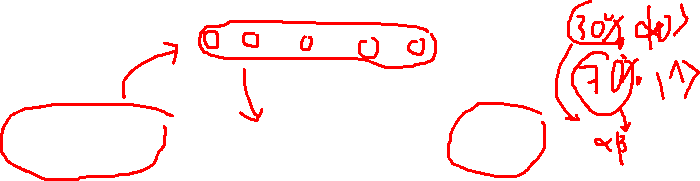 30% α|0⟩
70% |1⟩
αβ